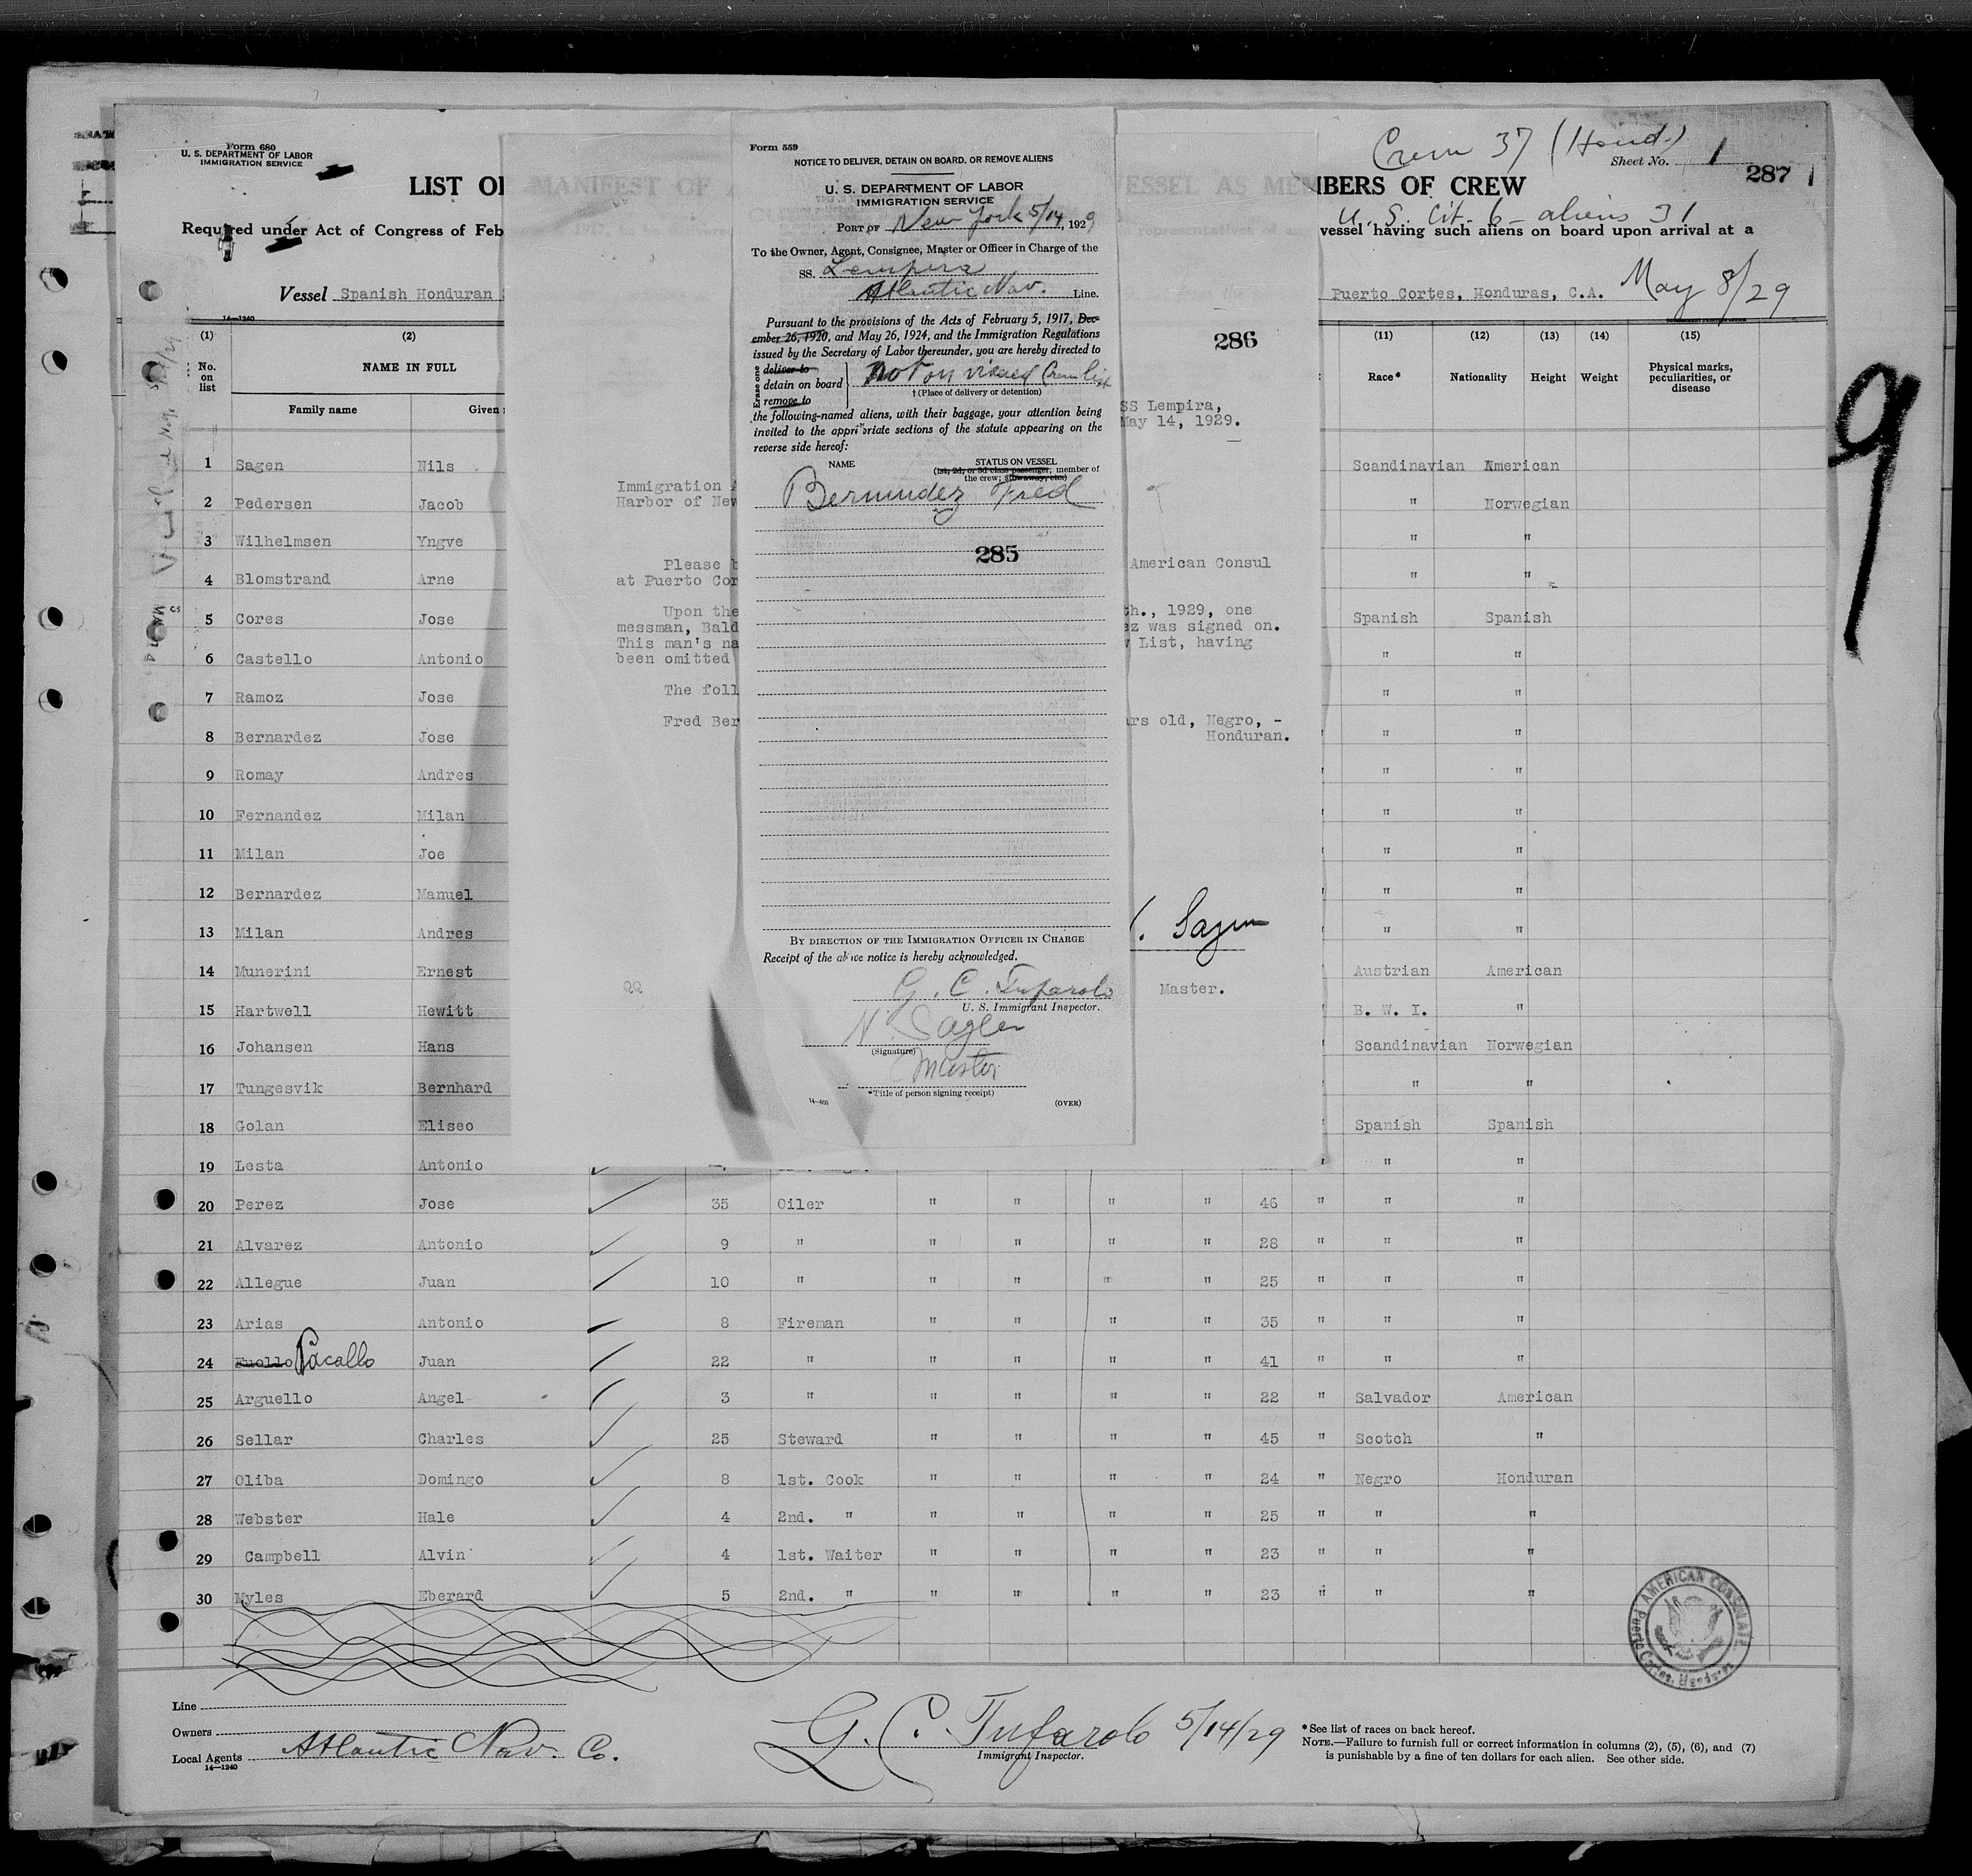 Form 680
U. S. DEPARTMENT OF LABOR
IMMIGRATION SERVICE
LIST OF MANIFEST OF VESSEL AS MEMBERS OF CREW
Crew 37 (Hond.)
Sheet No. 1
287
U. S. Cit. 6 - aliens 31
Required under Act of Congress of Feb
vessel having such aliens on board upon arrival at a
Vessel Spanish Honduran
Puerto Cortes, Honduras, C.A. May 8/29
14—1240
(1) (2) (11) (12) (13) (14) (15)
No. on list NAME IN FULL Race* Nationality Height Weight Physical marks, peculiarities, or disease
Family name Given
1 Sagen Nils Scandinavian American
2 Pedersen Jacob " Norwegian
3 Wilhelmsen Yngve " "
4 Blomstrand Arne " "
5 Cores Jose Spanish Spanish
6 Castello Antonio " "
7 Ramoz Jose " "
8 Bernardez Jose " "
9 Romay Andres " "
10 Fernandez Milan " "
11 Milan Joe " "
12 Bernardez Manuel " "
13 Milan Andres " "
14 Munerini Ernest Austrian American
15 Hartwell Hewitt B. W. I. "
16 Johansen Hans Scandinavian Norwegian
17 Tungesvik Bernhard " "
18 Golan Eliseo Spanish Spanish
19 Lesta Antonio " "
20 Perez Jose 35 Oiler " " " " 46 " " "
21 Alvarez Antonio 9 " " " " " 28 " " "
22 Allegue Juan 10 " " " " " 25 " " "
23 Arias Antonio 8 Fireman " " " " 35 " " "
24 Pacallo Juan 22 " " " " " 41 " " "
25 Arguello Angel 3 " " " " " 22 " Salvador American
26 Sellar Charles 25 Steward " " " " 45 " Scotch "
27 Oliba Domingo 8 1st. Cook " " " " 24 " Negro Honduran
28 Webster Hale 4 2nd. " " " " " 25 " " "
29 Campbell Alvin 4 1st. Waiter " " " " 23 " " "
30 Myles Eberard 5 2nd. " " " " " 23 " " "
Line
Owners
Local Agents Atlantic Nav. Co.
14—1240
G. C. Tufarolo 5/14/29
Immigrant Inspector.
*See list of races on back hereof.
NOTE.—Failure to furnish full or correct information in columns (2), (5), (6), and (7)
is punishable by a fine of ten dollars for each alien. See other side.
AMERICAN CONSULATE
Puerto Cortes, Honduras
9
286
SS Lempira,
May 14, 1929.
Immigration
Harbor of New
Please
American Consul
at Puerto Cor
Upon the
th., 1929, one
messman, Bald
ez was signed on.
This man's na
List, having
been omitted
The foll
Fred Ber
ars old, Negro, -
Honduran.
Sagen
Master.
Form 559
NOTICE TO DELIVER, DETAIN ON BOARD, OR REMOVE ALIENS
U. S. DEPARTMENT OF LABOR
IMMIGRATION SERVICE
PORT OF New York 5/14, 1929
To the Owner, Agent, Consignee, Master or Officer in Charge of the
SS. Lempira
Atlantic Nav. Line.
Pursuant to the provisions of the Acts of February 5, 1917, Dec-
ember 26, 1920, and May 26, 1924, and the Immigration Regulations
issued by the Secretary of Labor thereunder, you are hereby directed to
Erase one
deliver to
detain on board
remove to
Not on visaed Crew list
† (Place of delivery or detention)
the following-named aliens, with their baggage, your attention being
invited to the appropriate sections of the statute appearing on the
reverse side hereof:
NAME STATUS ON VESSEL
(1st, 2d, or 3d class passenger; member of
the crew; stowaway, etc.)
Bermudez Fred
285
BY DIRECTION OF THE IMMIGRATION OFFICER IN CHARGE
Receipt of the above notice is hereby acknowledged.
G. C. Tufarolo
U. S. Immigrant Inspector.
N. Sagen
(Signature)
Master
*Title of person signing receipt)
14—400
(OVER)